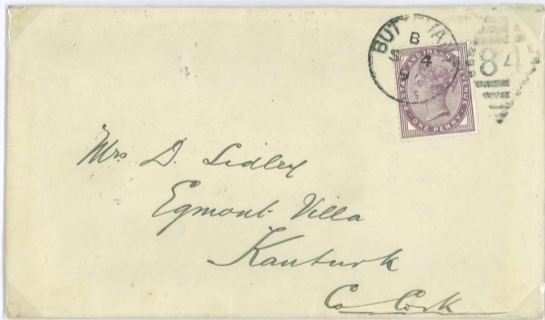 B
4
84
POSTAGE AND INLAND REVENUE
ONE PENNY
Mrs D. Sidley
Egmont Villa
Kanturk
Co Cork